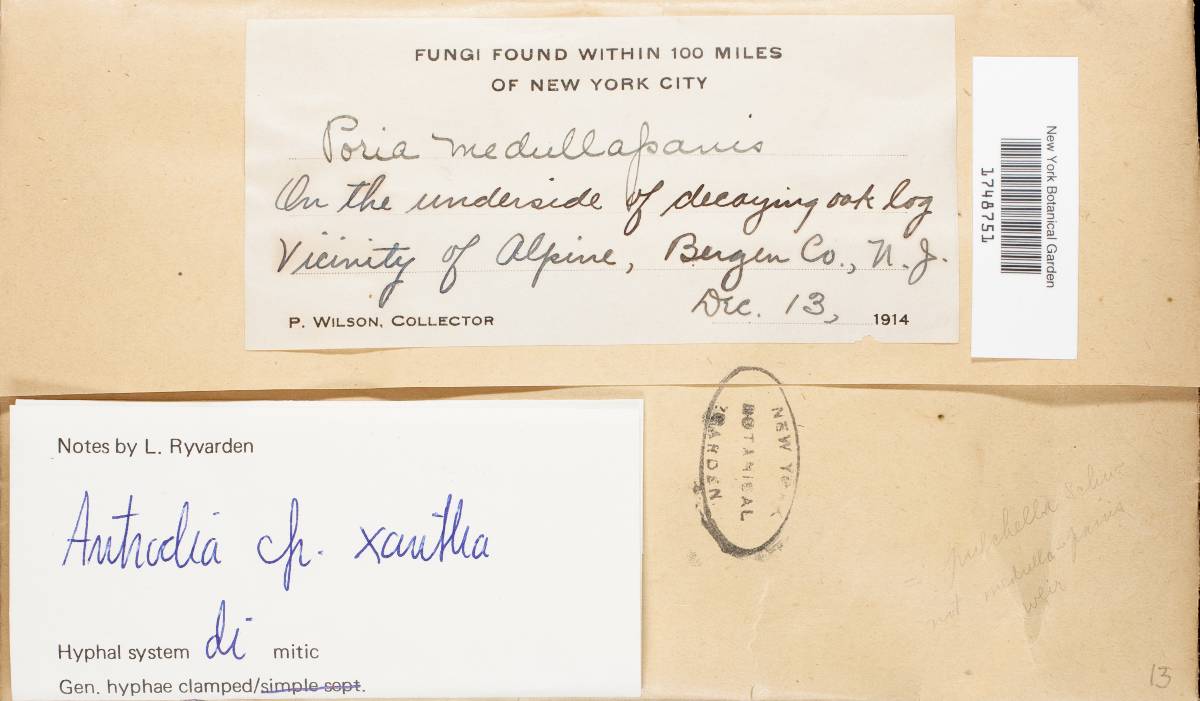 FUNGI FOUND WITHIN 100 MILES
OF NEW YORK CITY
Poria medullapanis
On the underside of decaying oak log
Vicinity of Alpine, Bergen Co., N. J.
Dec. 13, 1914
P. WILSON, COLLECTOR
New York Botanical Garden
1748751
NEW YORK
BOTANICAL
GARDEN
Notes by L. Ryvarden
Antrodia cf. xantha
Hyphal system di mitic
Gen. hyphae clamped/simple sept.
= pulchella Schw
not medulla-panis
Weir
13